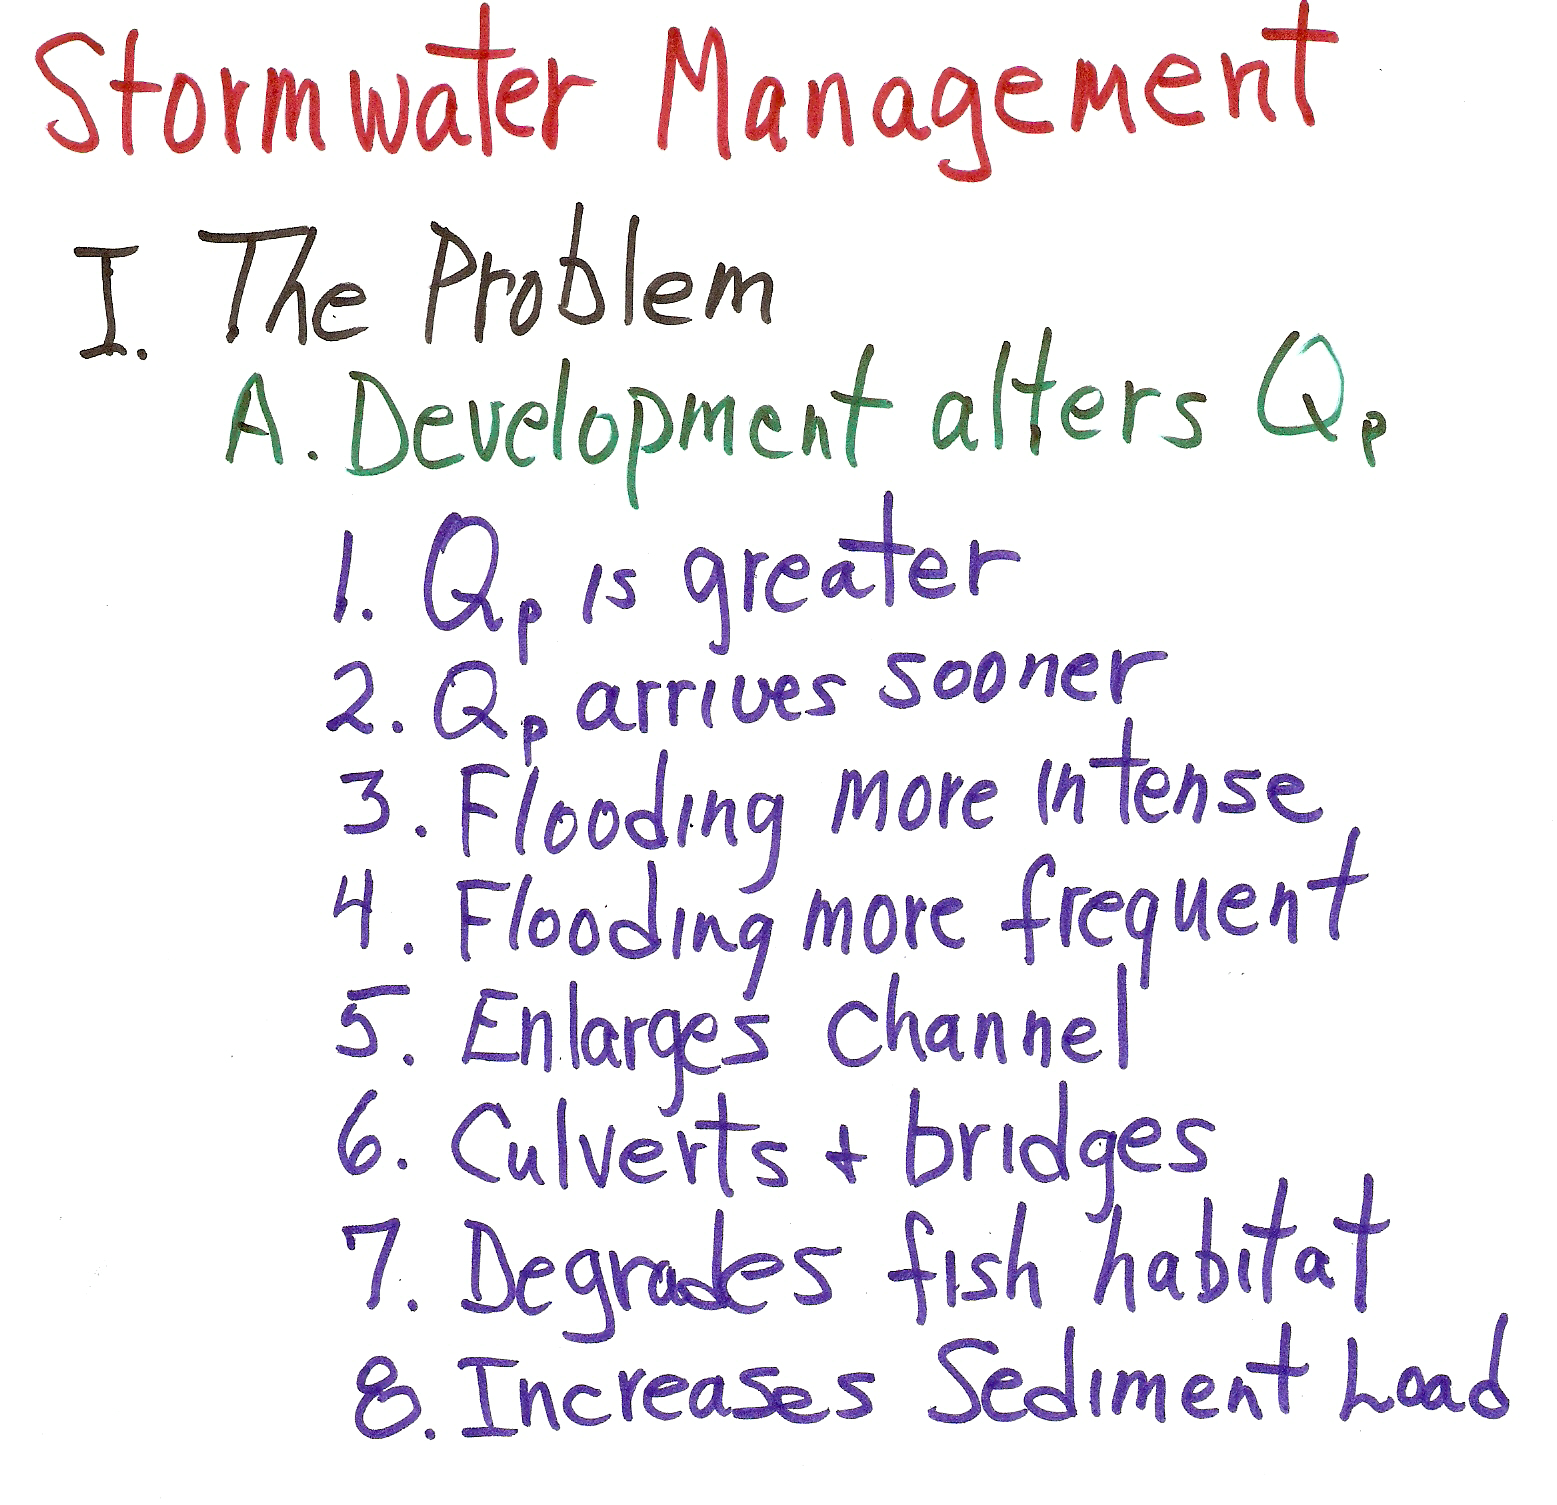 Stormwater Management
I. The Problem
A. Development alters Qp
1. Qp is greater
2. Qp arrives sooner
3. Flooding more intense
4. Flooding more frequent
5. Enlarges channel
6. Culverts + bridges
7. Degrades fish habitat
8. Increases Sediment Load